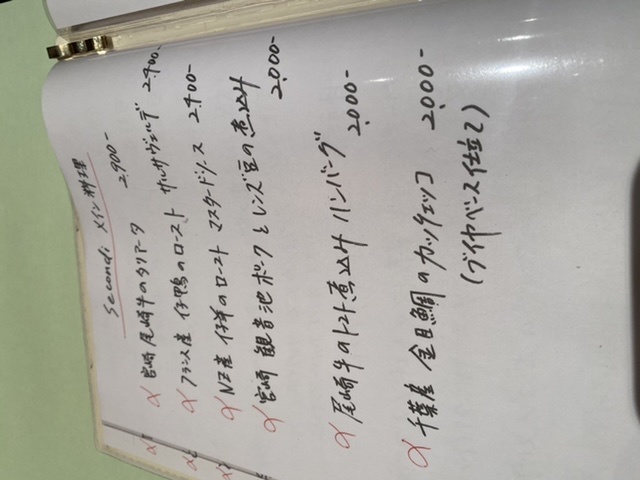 Secondi メイン料理
宮崎 尾崎牛のタリアータ 2,900-
フランス産 仔鴨のロースト サルサヴェルデ 2,400-
NZ産 仔羊のロースト マスタードソース 2,400-
宮崎 観音池ポークとレンズ豆の煮込み 2,000-
尾崎牛のトマト煮込みハンバーグ 2,000-
千葉産 金目鯛のカッチュッコ 2,000-
(ブイヤベース仕立て)